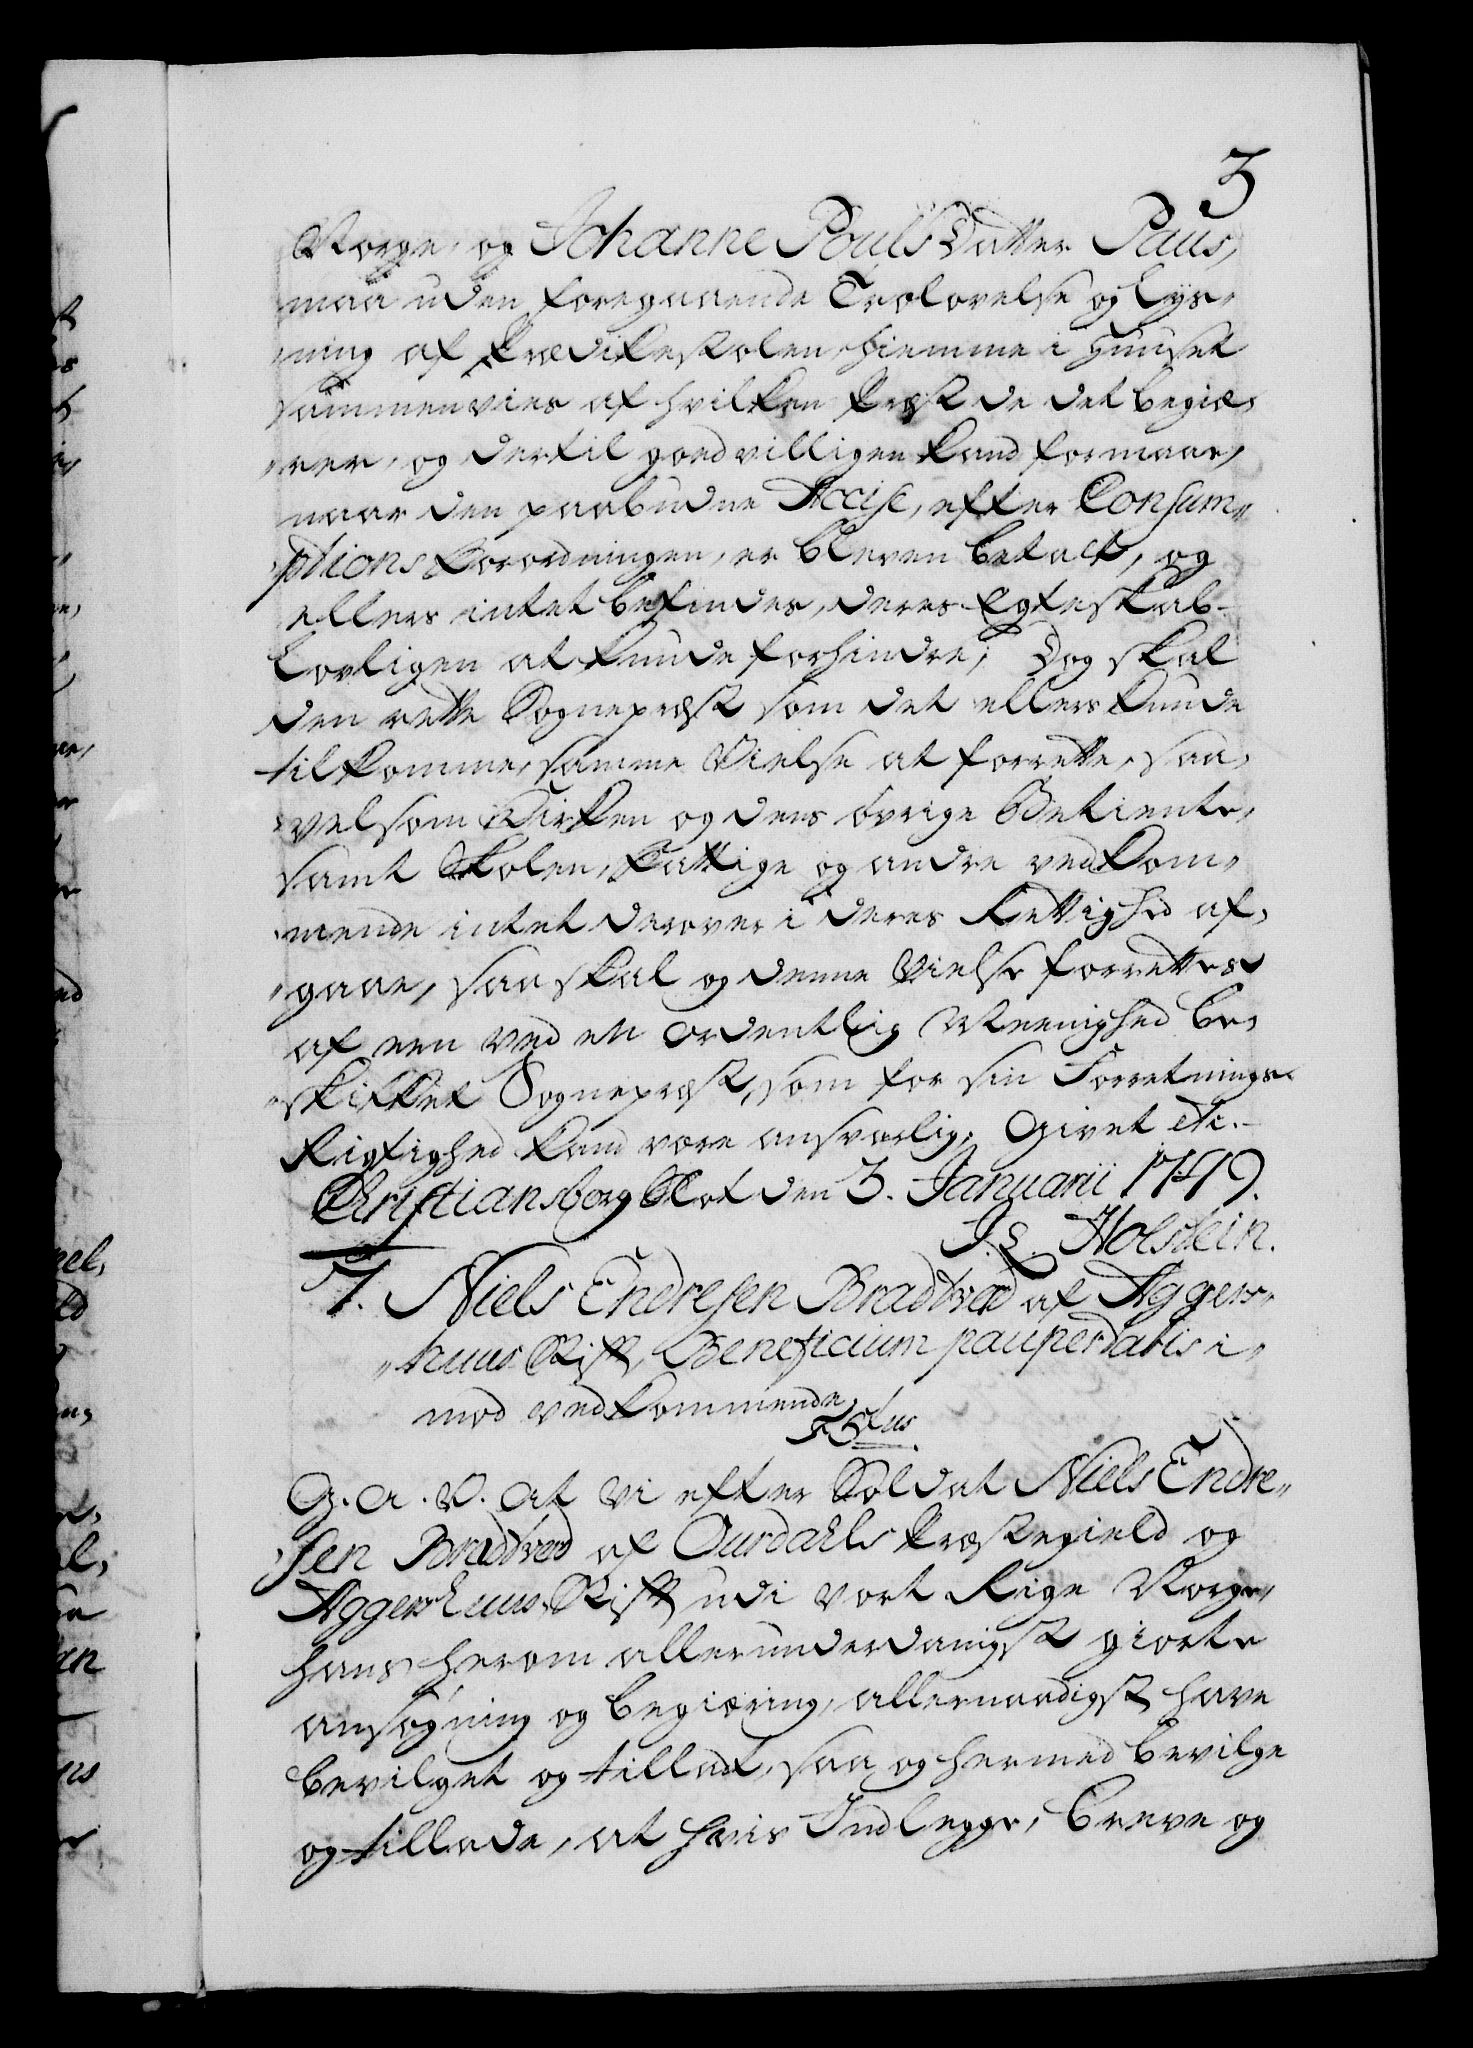 3
Norge, og Johanne Pouls Datter Paus,
maa uden foregaaende Trolovelse og Lys-
ning af Prædikestolen, hiemme i Huuset
sammenvies af hvilken Præst de det begiæ-
rer, og dertil goedvilligen kand formaae,
naar den paabudne Accise, efter Consum-
ptions Forordningen, er bleven betalt, og
ellers intet befindes, deres Egteskab
lovligen at kunde forhindre; Dog skal
den rette Sognepræst som det ellers kunde
tilkomme, samme Vielse at forrette, saa-
velsom Kirken og dens øvrige Betiente,
samt Skolen, Fattige og andre vedkom-
mende intet derover i deres Rettighed af-
gaae, saa skal og denne Vielse forrettes
af een ved en ordentlig Meenighed be-
skikket Sognepræst, som for sin Forretnings
Rigtighed kand være ansvarlig; Givet etc.
Christiansborg Slot den 3. Januarii 1749.
J. L. Holstein.
7. Niels Endresen Bradtved af Aggers-
huus Stift, Beneficium paupertatis i-
mod vedkommende.
G. A. V. At Vi efter Soldat Niels Endre-
sen Bradtved af Ourdahls Præstegield og
Aggershuus Stift udi vort Rige Norge,
hans herom allerunderdanigst giorte
ansøgning og begiæring, allernaadigst have
bevilget og tilladt, saa og hermed bevilge
og tillade, at hvis Indlegge, breve og